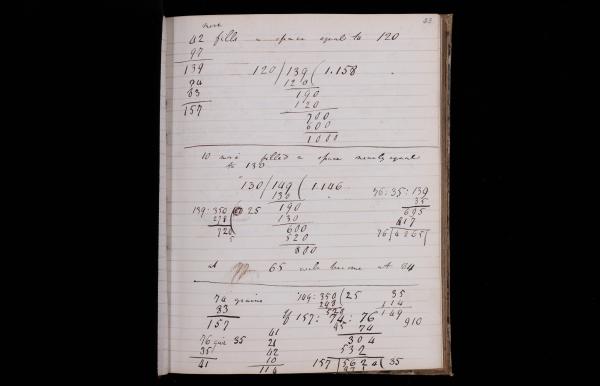 more 23
42 fills a space equal to 120
97
139 120/139(1.158
94 120
63 190
157 120
700
600
1000
10 more filled a space nearly equal
to 130
130/149(1.146
130
190
130
600
520
800
76:35:139
35
695
417
76/4865
139:350 25
278
720
at 65 will become at 84
74 grains
83
157
76 35
35
41
41
21
42
10
114
149:350(25
298
520
35
114
149
910
If 157: 74: 76
74
304
532
157/5624(35